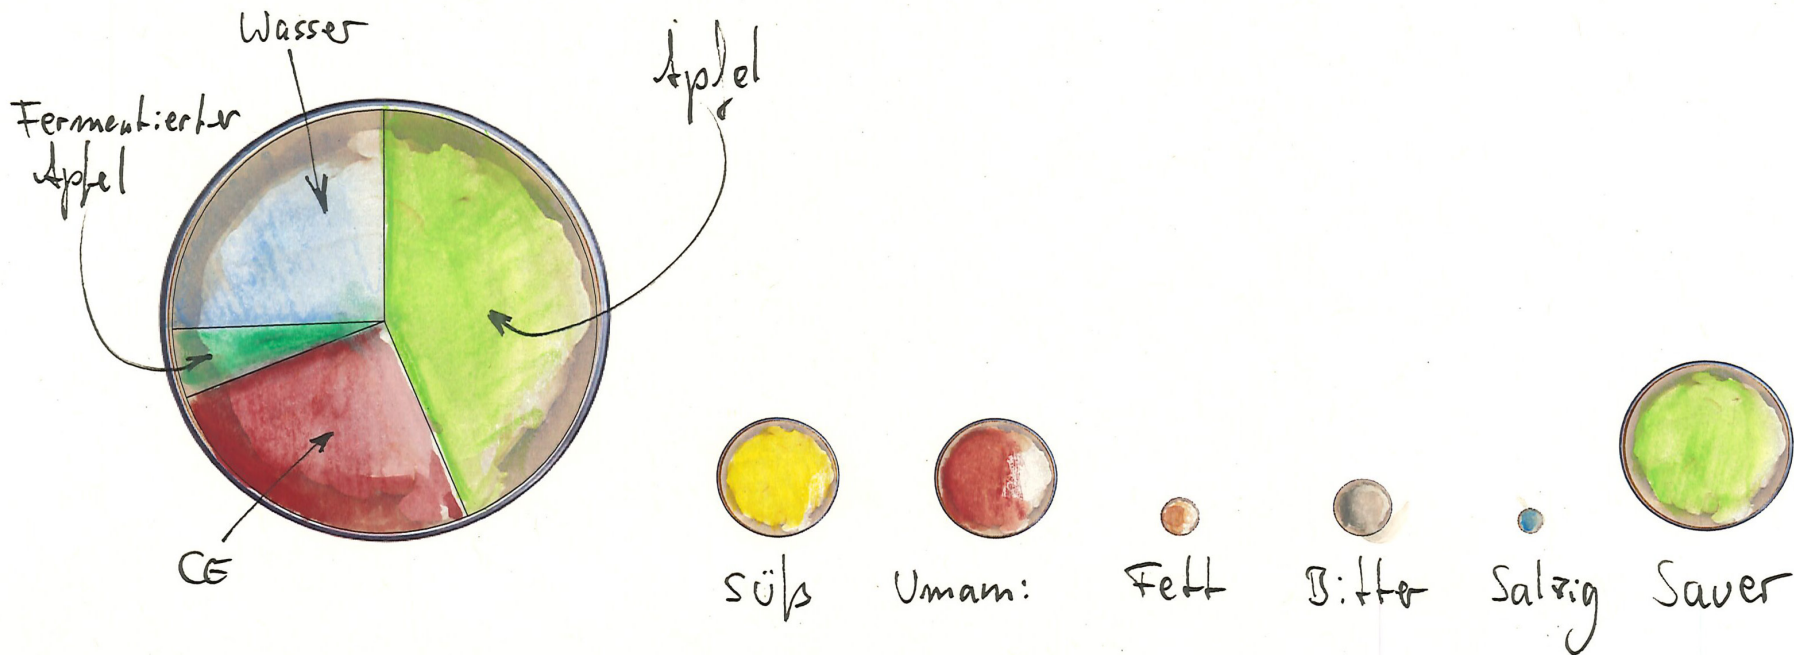 Wasser
Apfel
Fermentierter
Apfel
CE
Süß
Umami
Fett
Bitter
Salzig
Sauer